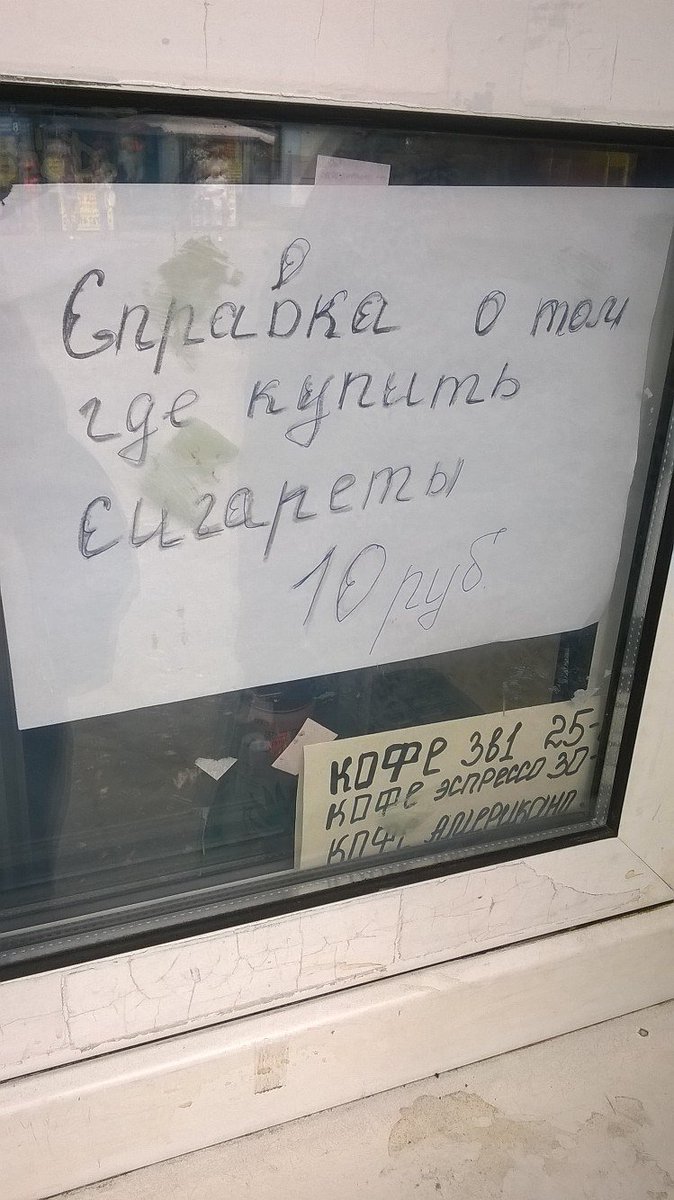 Справка о том
где купить
сигареты
10 руб.
КОФЕ 3В1 25-
КОФЕ ЭСПРЕССО 30-
КОФЕ АМЕРИКАНО